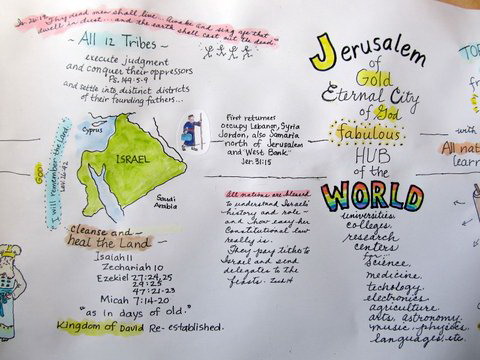 Is. 26:19 "Thy dead men shall live... Awake and sing, ye that
dwell in dust... and the earth shall cast out the dead."
~ All 12 Tribes ~
execute judgment
and conquer their oppressors
Ps. 149:5-9
and settle into distinct districts
of their founding fathers...
Cyprus
ISRAEL
Saudi
Arabia
God:
I will remember the land.
Lev. 26:42
Cleanse and
heal the Land ~
Isaiah 11
Zechariah 10
Ezekiel 27:24,25
29:25
47:21-23
Micah 7:14-20
"as in days of old."
Kingdom of David Re-established.
First returnees
occupy Lebanon, Syria
Jordan, also Samaria
north of Jerusalem
and "West Bank."
Jer. 31:15
All nations are blessed
to understand Israel's
history and role ~
and how easy her
Constitutional law
really is.
They pay tithes to
Israel and send
delegates to the
feasts.
Jerusalem
of
Gold
Eternal City
of God
fabulous
HUB
of the
WORLD
universities
colleges,
research
centers
for...
science,
medicine,
techology
electronics
agriculture
arts, astronomy
music, physics,
languages, etc.
with
All nat
learn